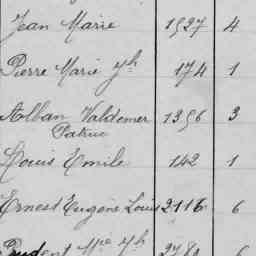 Jean Marie 1927 4
Pierre Marie Jh 174 1
Alban Valdemer 1396 3
Patrice
Louis Emile 142 1
Ernest Eugène Louis 2116 6
Prudent Mie Jh 2780 6